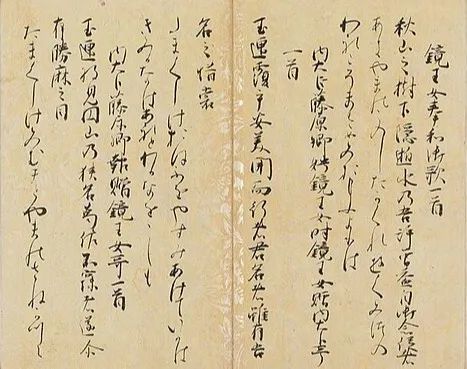 鏡王女奉和御歌一首
秋山之樹下隠逝水乃吾許曽益目御念従者
あきやまのこのしたかくれゆくみつの
われこそまさめ
内大臣藤原卿娉鏡王女時鏡王女贈内大臣哥
一首
玉匣覆乎安美開而行者君名者雖有吾
名之惜裳
たまくしけおほふをやすみあけていなは
きみかなはあれとわかなをしも
内大臣藤原卿報贈鏡王女哥一首
玉匣将見円山乃狭名葛佐不寐者遂尓
有勝麻之目
たまくしけみむろとやまのさねかつら